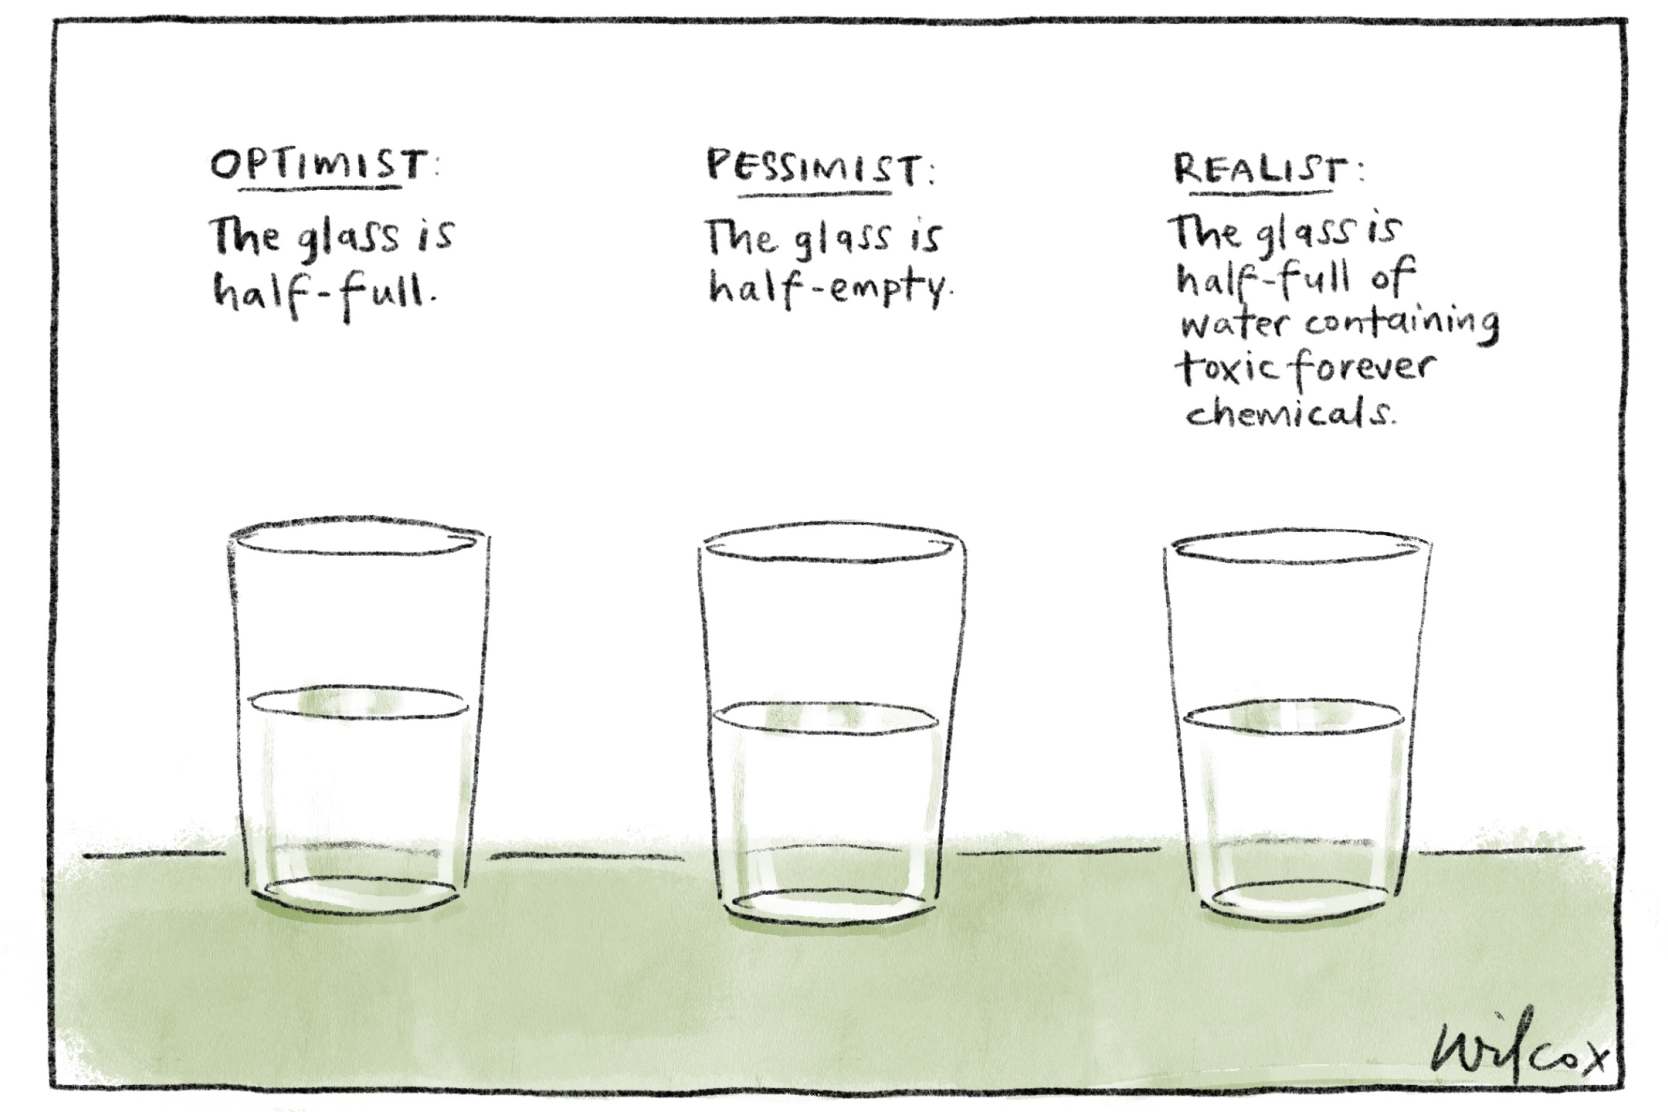 OPTIMIST:
The glass is
half-full.
PESSIMIST:
The glass is
half-empty.
REALIST:
The glass is
half-full of
water containing
toxic forever
chemicals.
Wilcox